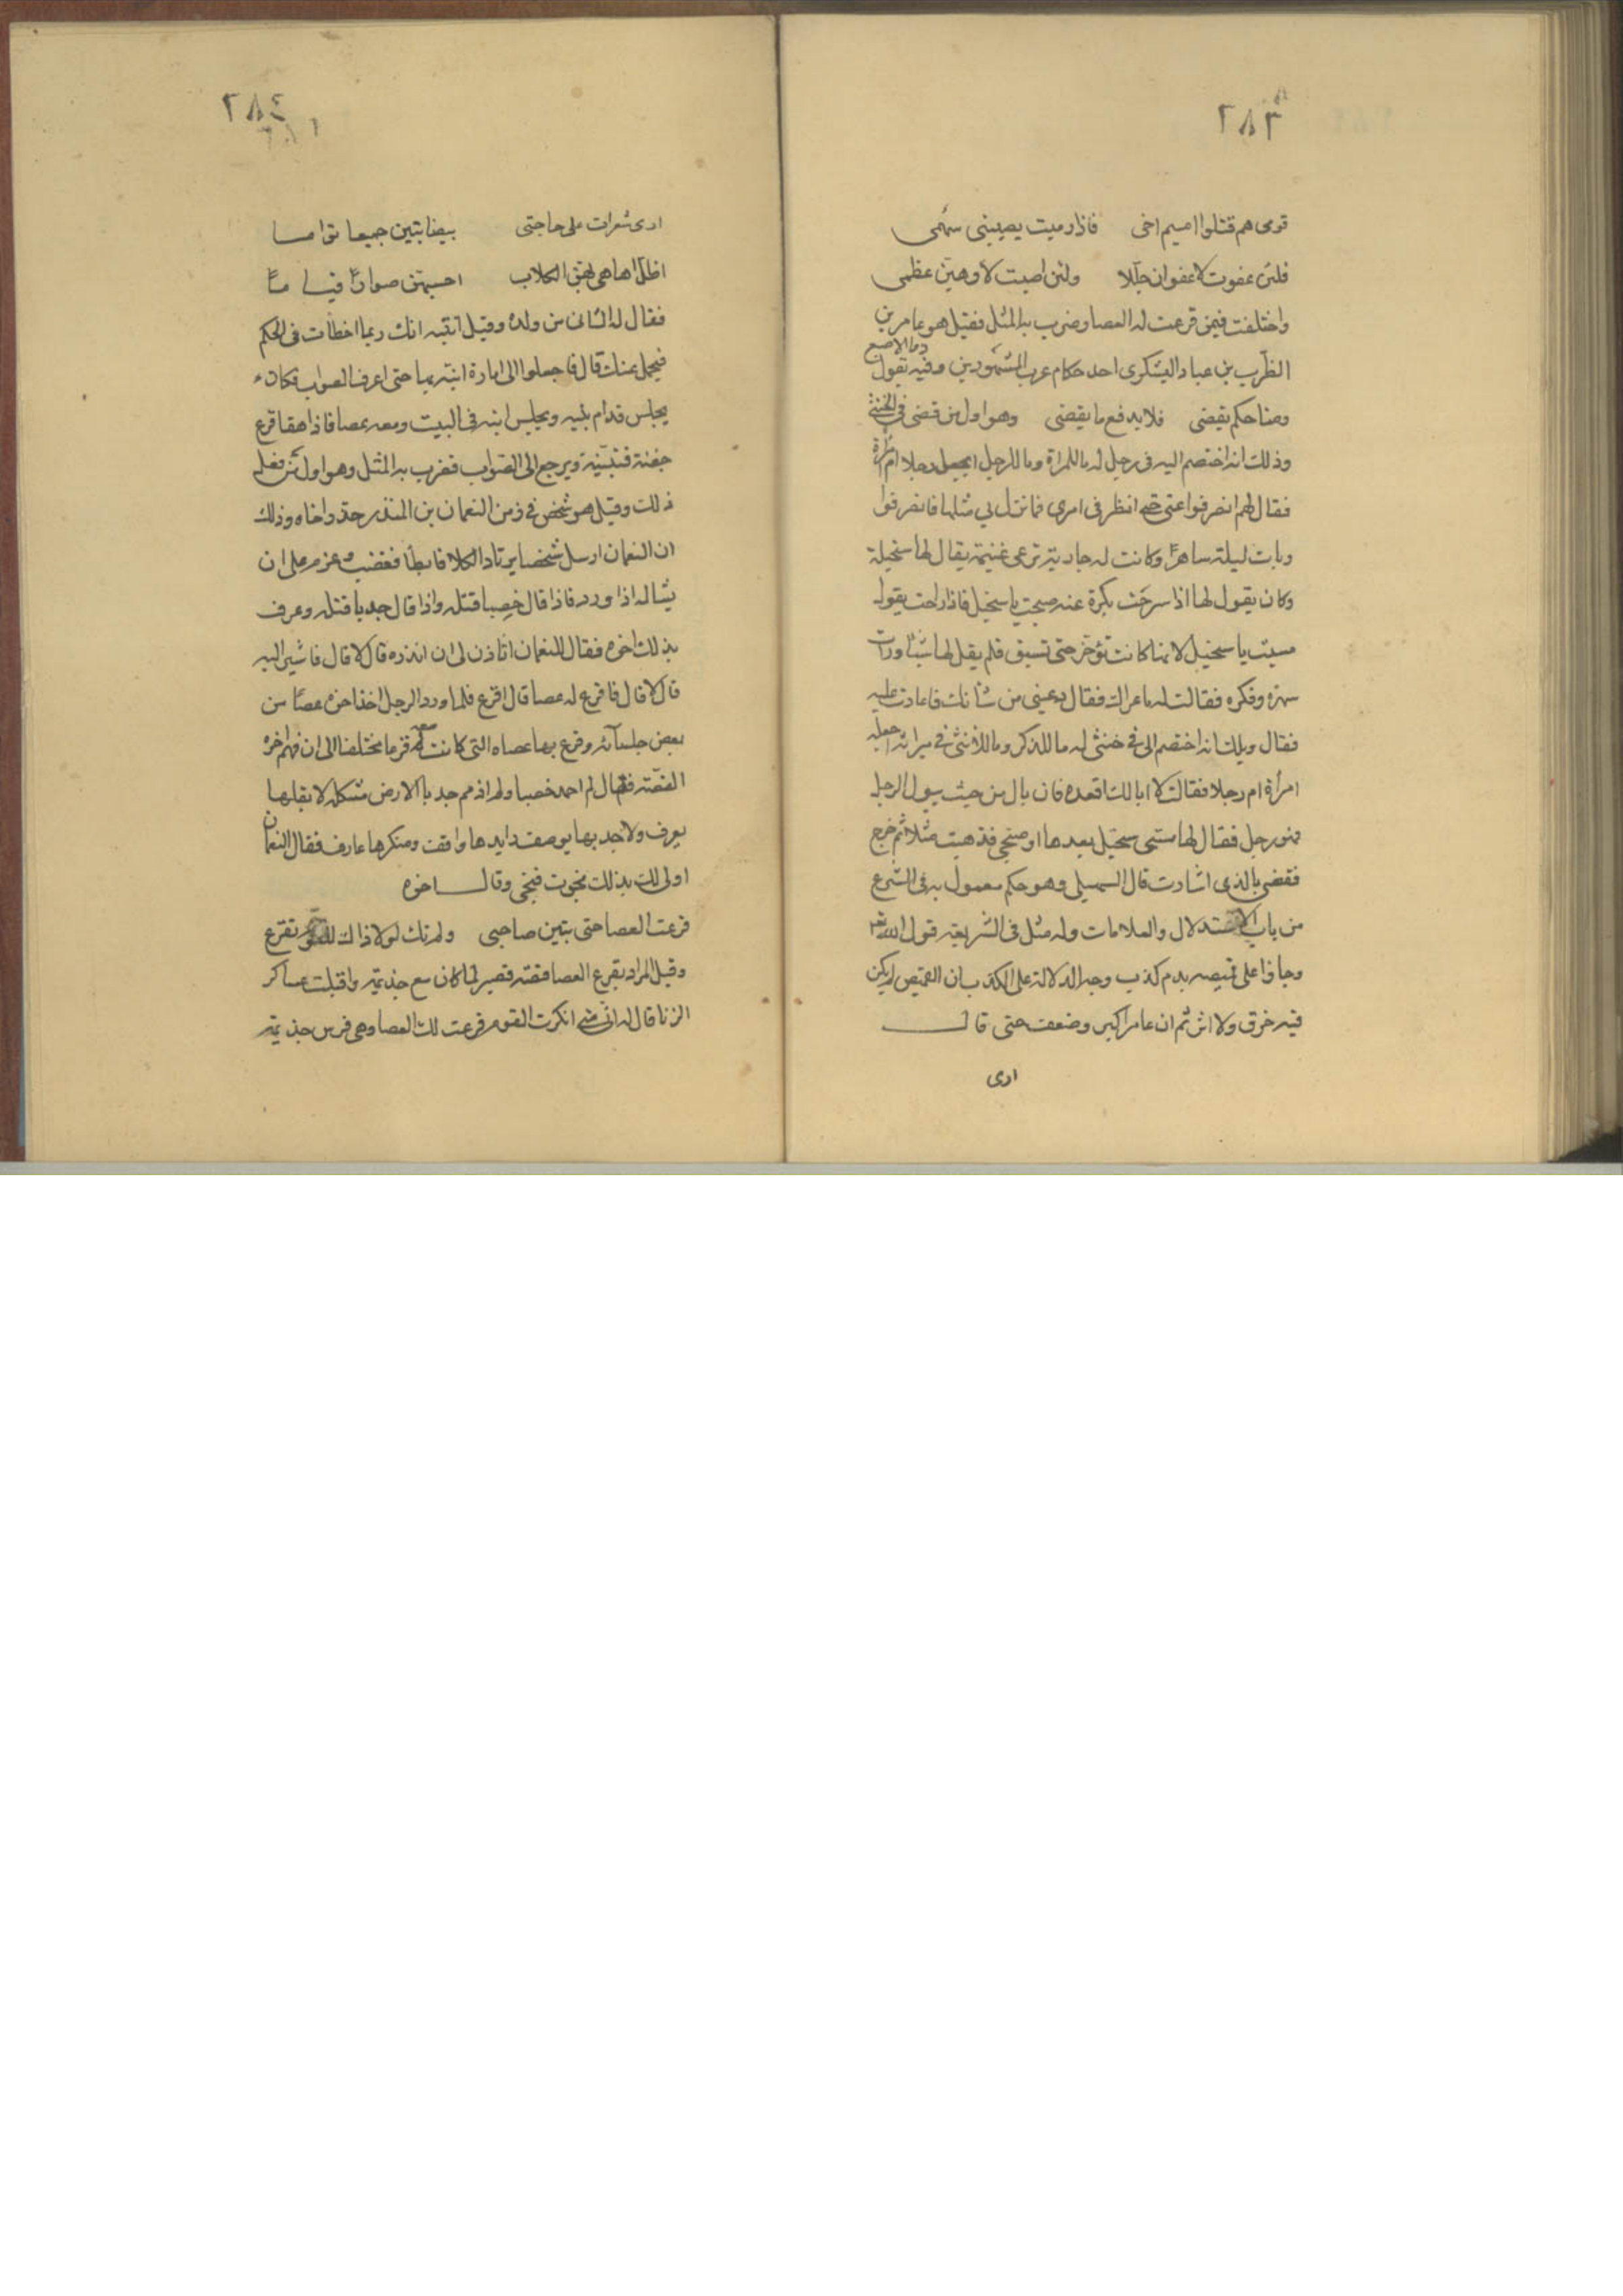 ٢٨٣
قومى هم قتلوا اميم اخى فاذا رميت يصيبنى سهمى
فلئن عفوت لاعفوان جللا ولئن اصبت لاوهين عظمى
واختلفت فيمن قرعت له العصا وضرب به المثل فقيل هو عامر بن
الظرب بن عباد اليشكرى احد حكام عرب المشهورين وفيه يقول ذو الاصبع
ومنا حكم يقضى فلا يدفع ما يقضى وهو اول من قضى فى الخنثى
وذلك انه اختصم اليه فى رجل له ما للمراة وما للرجل ايجعل رجلا ام امرأة
فقال لهم انصرفوا عنى حتى انظر فى امرى فما نزل بى مثلها فانصرفوا
وبات ليلته ساهرا وكانت له جارية ترعى غنيمة يقال لها سخيلة
وكان يقول لها اذا سرحت بكرة عنه صبحت يا سخيل فاذا راحت يقول
مسيت يا سخيل لانها كانت تؤخر حتى تسبق فلم يقل لها شيئا ورات
سهره وفكره فقالت له ما عراك فقال دعينى من شأنك فاعادت عليه
فقال ويلك انه اختصم الى فى خنثى له ما للذكر وما للأنثى فى ميراثه اجعله
امرأة ام رجلا فقالت لا ابا لك اقعده فان بال من حيث يبول الرجل
فهو رجل فقال لها مستى سخيل بعدها او صبحى فذهبت مثلا ثم خرج
فقضى بالذى اشارت قال السهيلى وهو حكم معمول به فى الشرع
من باب الاستدلال والعلامات وله مثل فى الشريعة قول الله تعالى
وجاؤا على قميصه بدم كذب وجه الدلالة على الكذب بان القميص لم يكن
فيه خرق ولا اثر ثم ان عامرا كبر وضعف حتى قال
ارى
٢٨٤
ارى شعرات على حاجبى بيضا نبتين جميعا تواما
اظل اهاهى بهن الكلاب احسبهن صوارا قياما
فقال له الثانى من ولده وقيل ابنته انك ربما اخطأت فى الحكم
فيحمل عنك قال فاجعلوا الى امارة انتبه بها حتى اعرف الصواب فكان
يجلس قدام بيته ويجلس ابنه فى البيت ومعه عصا فاذا هفا قرع
جفنة فتنبيه ويرجع الى الصواب فضرب به المثل وهو اول من فعل
ذلك وقيل هو شخص فى زمن النعمان بن المنذر حذر اخاه وذلك
ان النعمان ارسل شخصا يرتاد الكلا فابطأ فغضب وعزم على ان
يساله اذا ورد فاذا قال خصبا قتله واذا قال جدبا قتله وعرف
بذلك اخوه فقال للنعمان اتاذن لى ان انذره قال لا قال فاشير اليه
قال لا قال فاقرع له عصا قال اقرع فلما ورد الرجل اخذ اخوه عصا من
بعض جلسآئه وقرع بها عصاه التى كانت معه قرعا مختلفا الى ان فهم اخوه
القصة فقال لم احمد خصبا ولم اذمم جدبا الارض مشكلة لا بقلها
يعرف ولا جدبها يوصف رايدها واقف ومنكرها عارف فقال النعمان
اولى لك بذلك نجوت فنجى وقال اخوه
قرعت العصا حتى تبين صاحبى ولم تك لولا ذاك للقوم تقرع
وقيل المراد بقرع العصا قصة قصير لما كان مع جذيمة واقبلت عساكر
الزبا قال له انى متى انكرت القوم قرعت لك العصا وهى فرس جذيمة